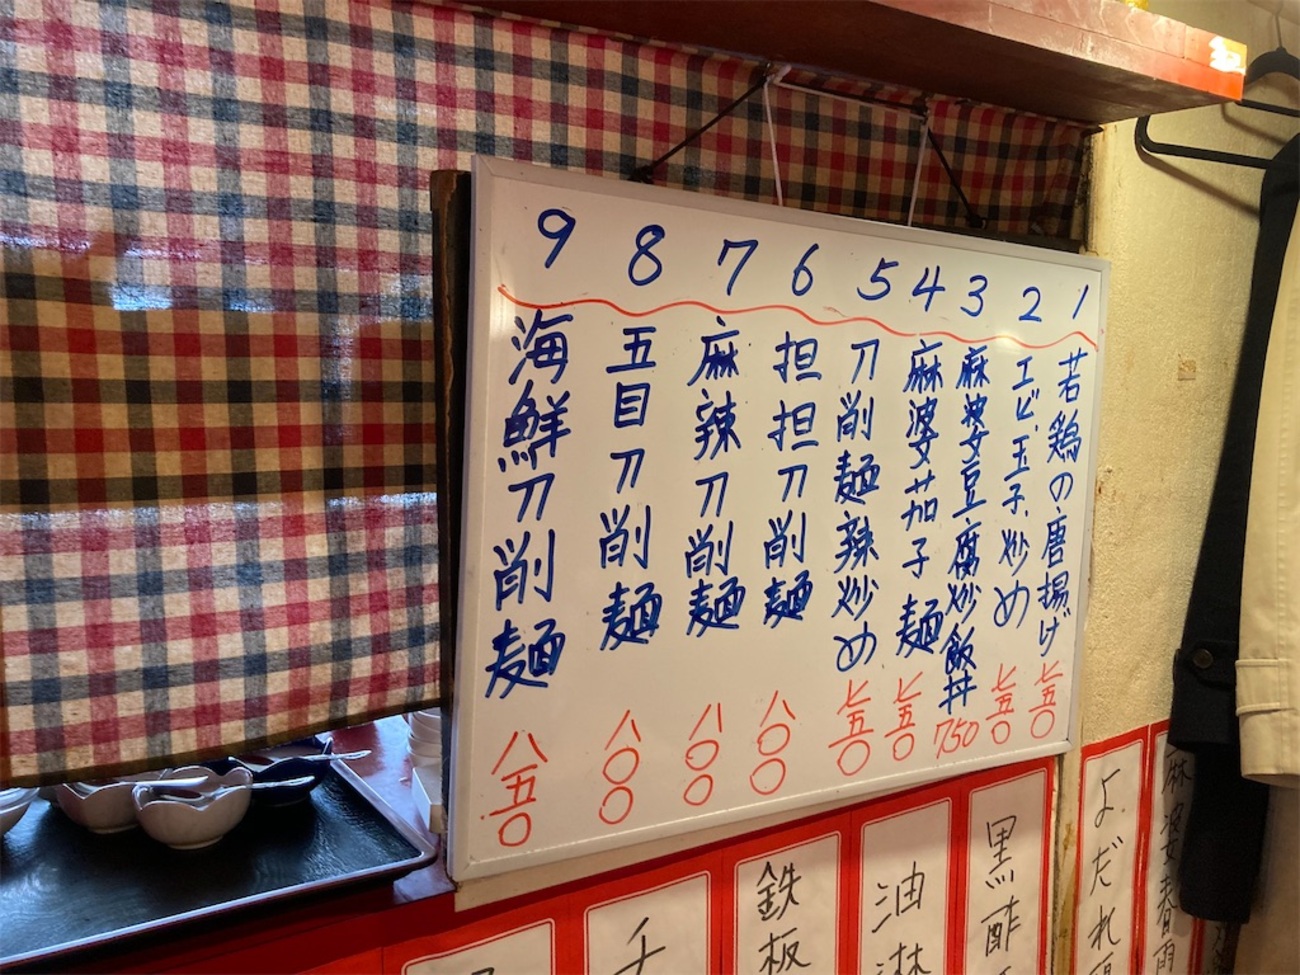 1 若鶏の唐揚げ 七五〇
2 エビ玉子炒め 七五〇
3 麻婆豆腐炒飯丼 750
4 麻婆茄子麺 七五〇
5 刀削麺辣炒め 七五〇
6 担担刀削麺 八〇〇
7 麻辣刀削麺 八〇〇
8 五目刀削麺 八〇〇
9 海鮮刀削麺 八五〇
麻婆春雨
よだれ
黒酢
油淋
鉄板
チ